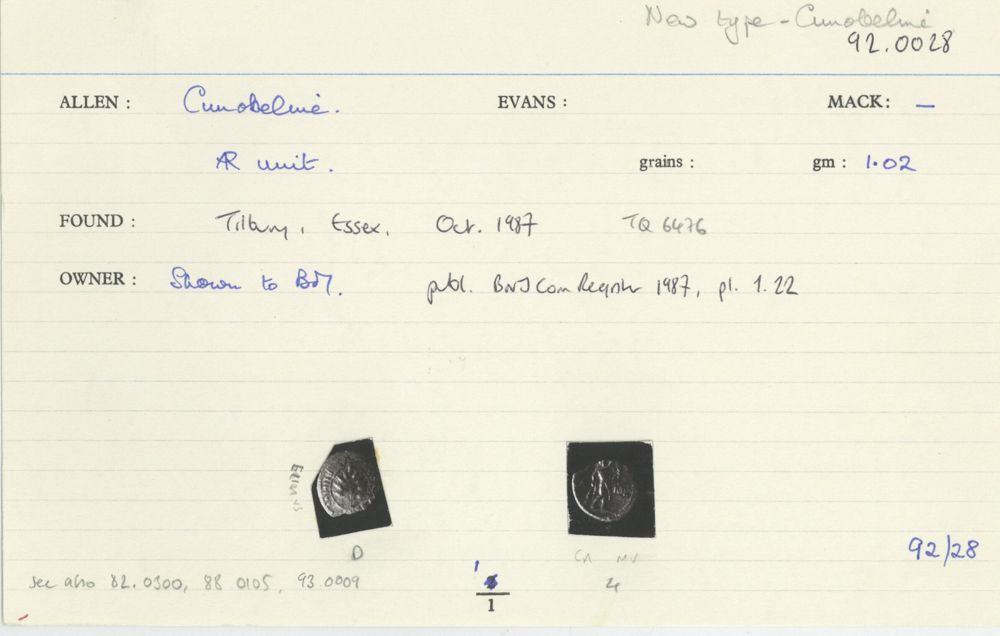 New type - Cunobeline
92.0028
ALLEN : Cunobeline. EVANS : MACK: —
AR unit. grains : gm : 1.02
FOUND : Tilbury, Essex, Oct. 1987 TQ 6476
OWNER : Shown to BM. publ. BNJ Coin Register 1987, pl. 1.22
D
CA
4
92/28
see also 82.0300, 88 0105, 93.0009
1